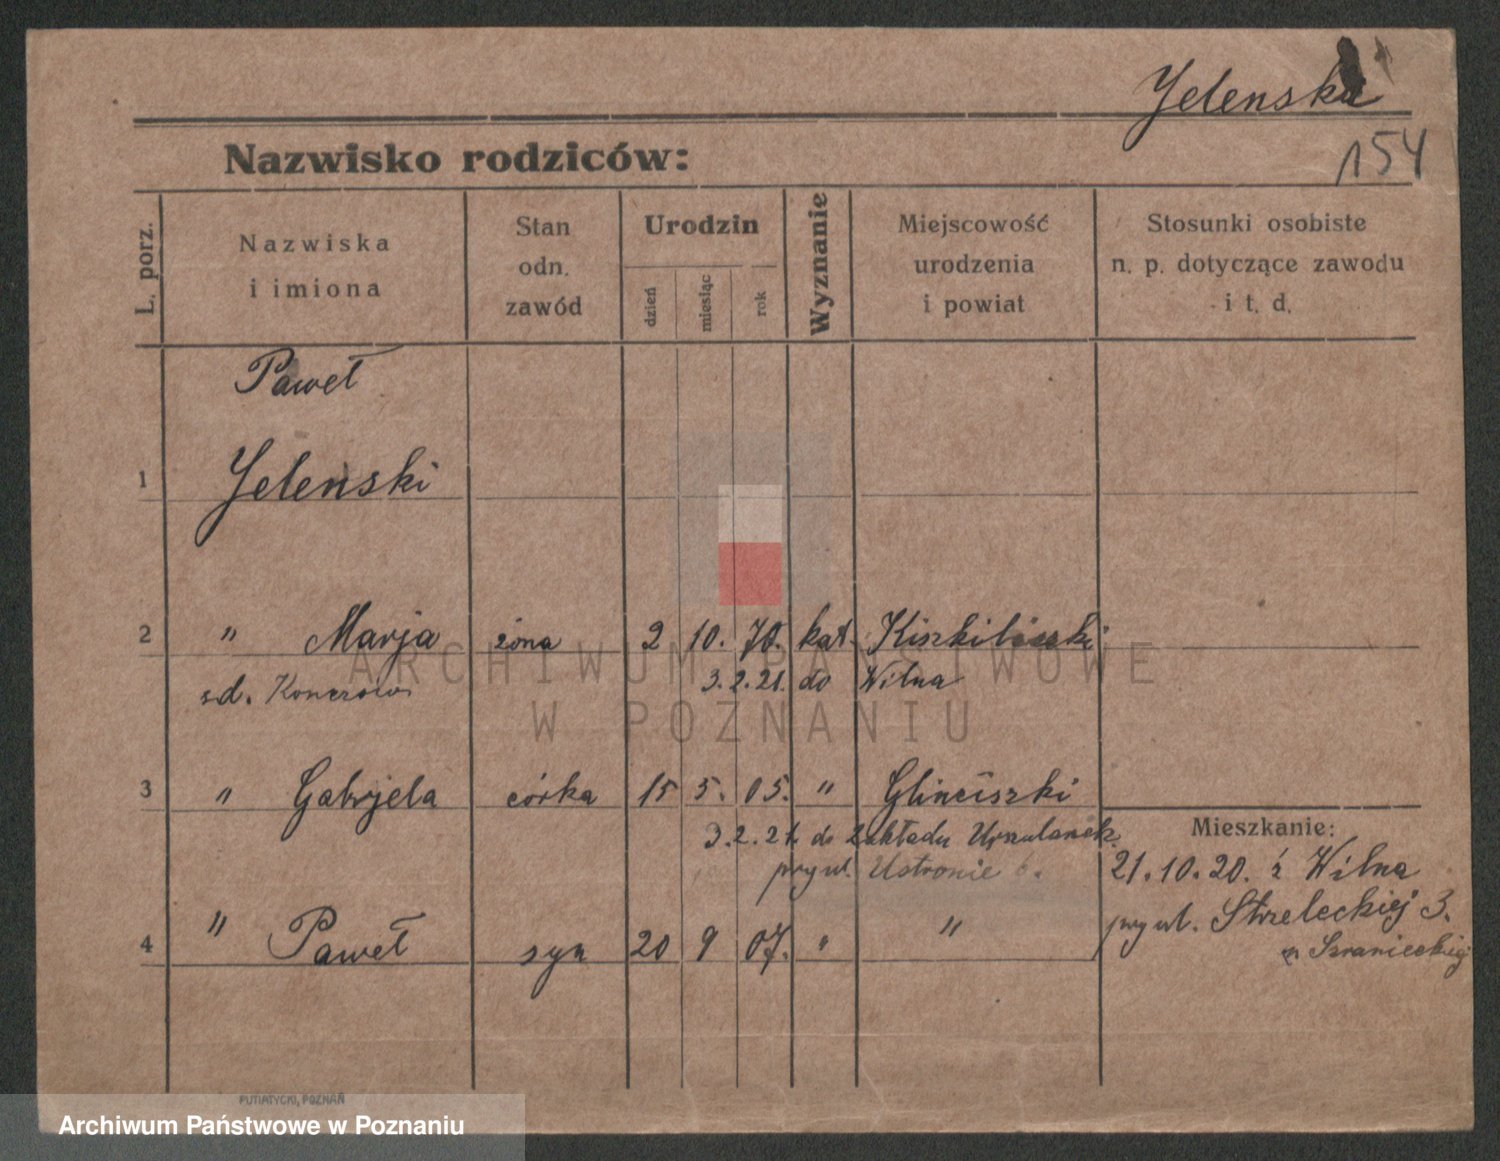 Jelenska
154
Nazwisko rodziców:
L. porz.
Nazwiska
i imiona
Stan
odn.
zawód
Urodzin
dzień
miesiąc
rok
Wyznanie
Miejscowość
urodzenia
i powiat
Stosunki osobiste
n. p. dotyczące zawodu
i t. d.
Paweł
1 Jelenski
2 " Marja żona 2 10. 70. kat.
zd. 3.2.21. do Wilna
3 " Gabrjela córka 15 5. 05. " Glinciszki
3.2.21. do Zakładu Urszulanek
przy ul. Ustronie 6.
Mieszkanie:
21.10.20. z Wilna
przy ul. Strzeleckiej 3.
4 " Paweł syn 20 9 07. " "
PUTIATYCKI, POZNAŃ
ARCHIWUM PAŃSTWOWE
W POZNANIU
Archiwum Państwowe w Poznaniu